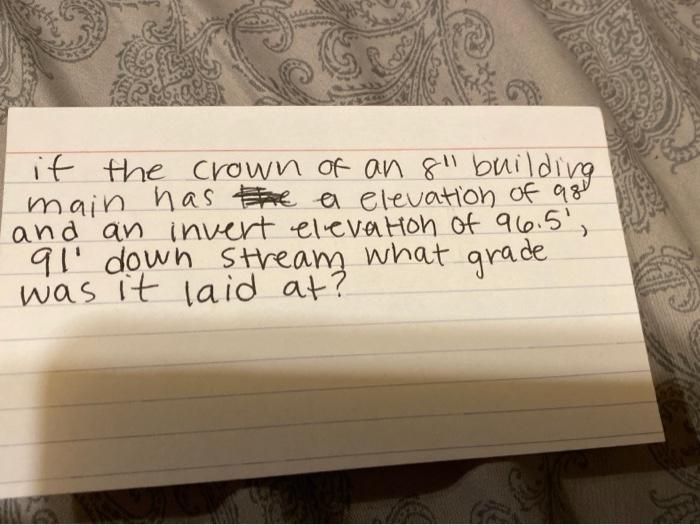 if the crown of an 8" building
main has the a elevation of 98'
and an invert elevation of 96.5',
91' down stream what grade
was it laid at?